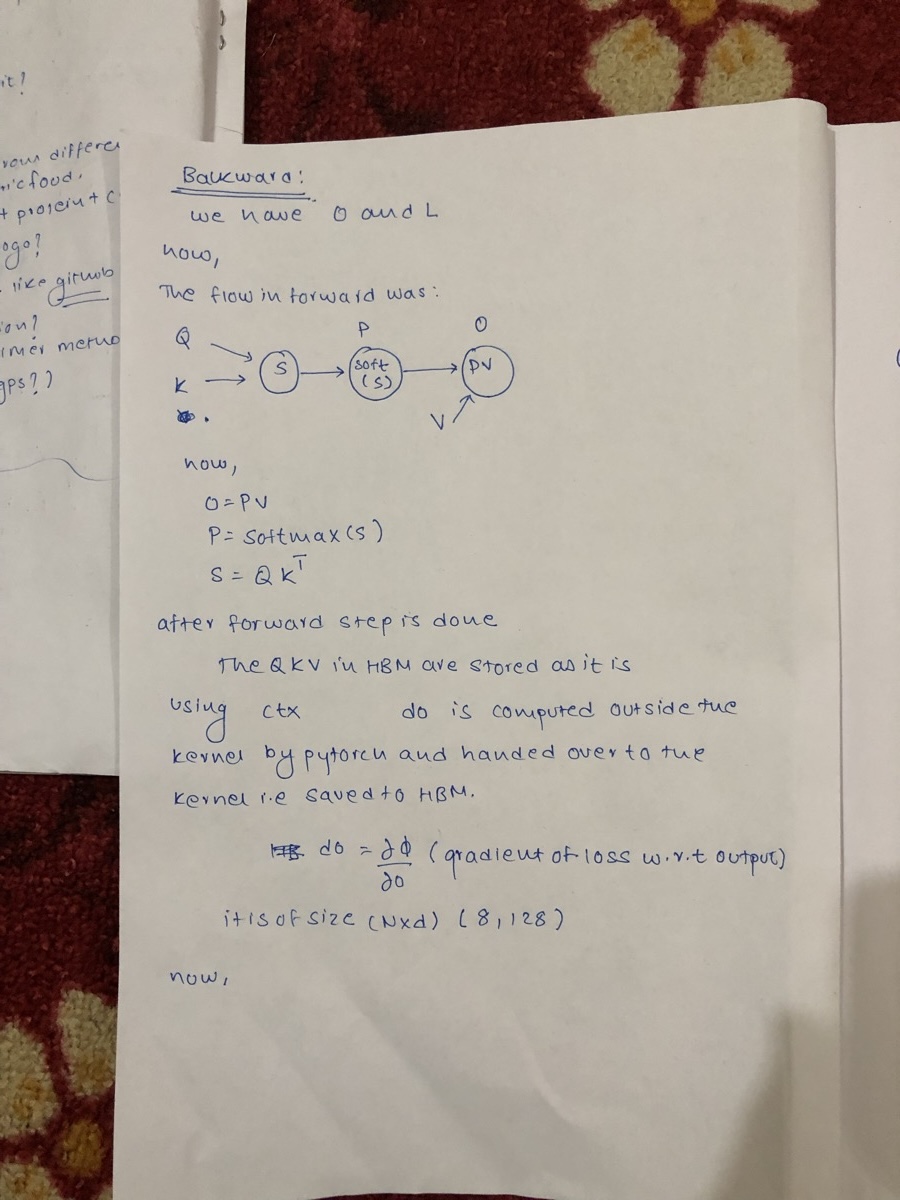 it?
differe
food.
+ protein + C
ogo?
like github
ion?
gps??)
Backward:
we have O and L
now,
The flow in forward was:
P O
Q
S soft (S) PV
K
V
now,
O = PV
P = softmax(S)
S = QK^T
after forward step is done
The QKV in HBM are stored as it is
using ctx do is computed outside the
kernel by pytorch and handed over to the
kernel i.e saved to HBM.
do = ∂φ/∂o (gradient of loss w.r.t output)
it is of size (Nxd) (8,128)
now,